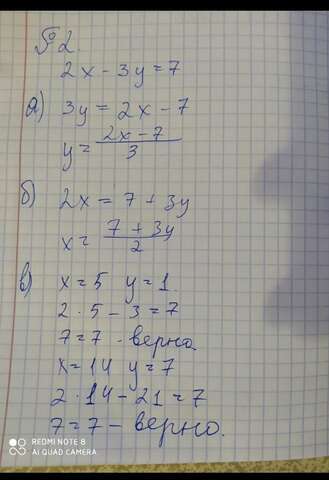 №2
2x - 3y = 7
а) 3y = 2x - 7
y = \frac{2x - 7}{3}
б) 2x = 7 + 3y
x = \frac{7 + 3y}{2}
в) x = 5 y = 1.
2 · 5 - 3 = 7
7 = 7 - верно.
x = 14 y = 7
2 · 14 - 21 = 7
7 = 7 - верно.
REDMI NOTE 8
AI QUAD CAMERA